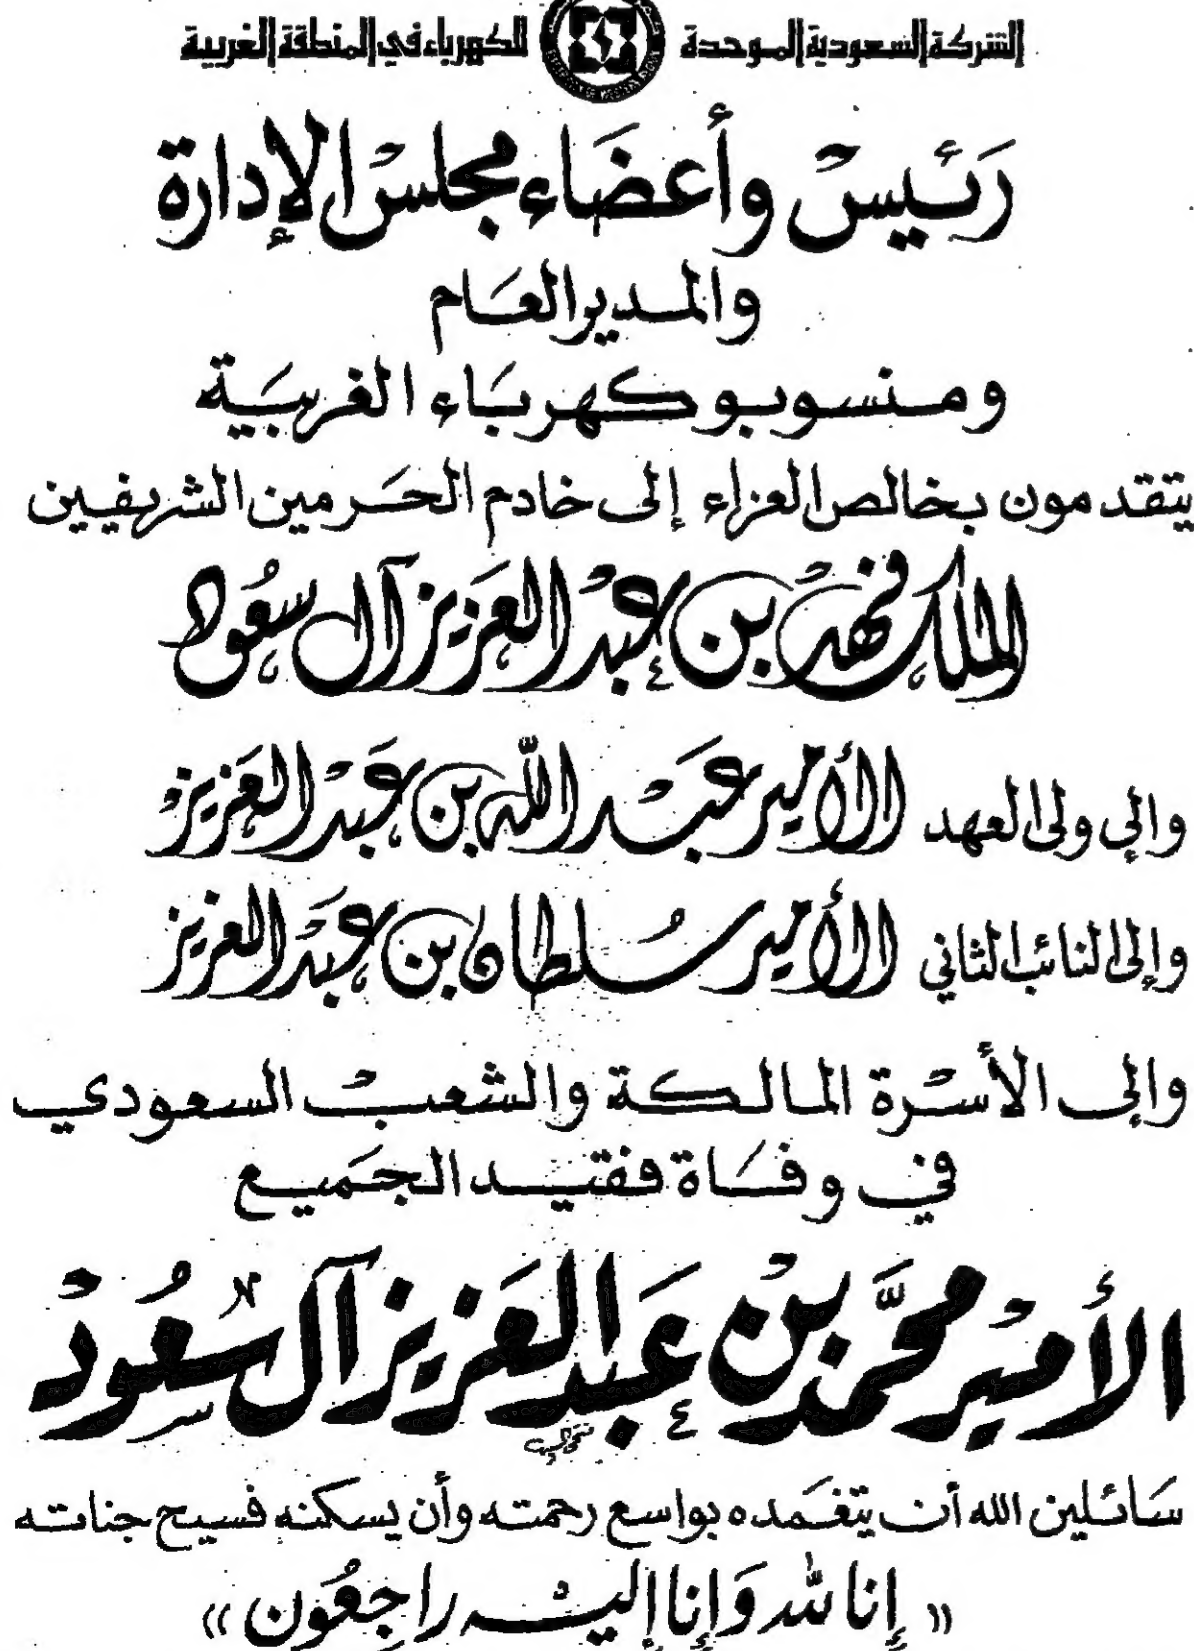 الشركة السعودية الموحدة للكهرباء في المنطقة الغربية
رئيس وأعضاء مجلس الإدارة
والمدير العام
ومنسوبو كهرباء الغربية
يتقدمون بخالص العزاء إلى خادم الحرمين الشريفين
الملك فهد بن عبد العزيز آل سعود
وإلى ولي العهد الأمير عبد الله بن عبد العزيز
وإلى النائب الثاني الأمير سلطان بن عبد العزيز
وإلى الأسرة المالكة والشعب السعودي
في وفاة فقيد الجميع
الأمير محمد بن عبد العزيز آل سعود
سائلين الله أن يتغمده بواسع رحمته وأن يسكنه فسيح جناته
« إنا لله وإنا إليه راجعون »